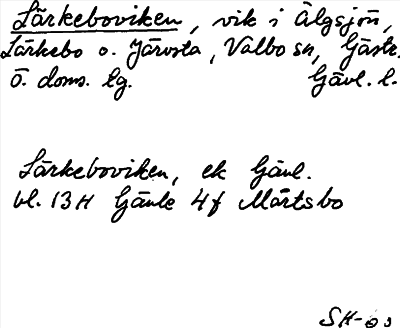 Lärkeboviken, vik i Älgsjön,
Lärkebo o. Järvsta, Valbo sn, Gästr.
Ö. doms. lg. Gävl. l.
Lärkeboviken, ek Gävl.
bl. 13H Gävle 4f Mårtsbo